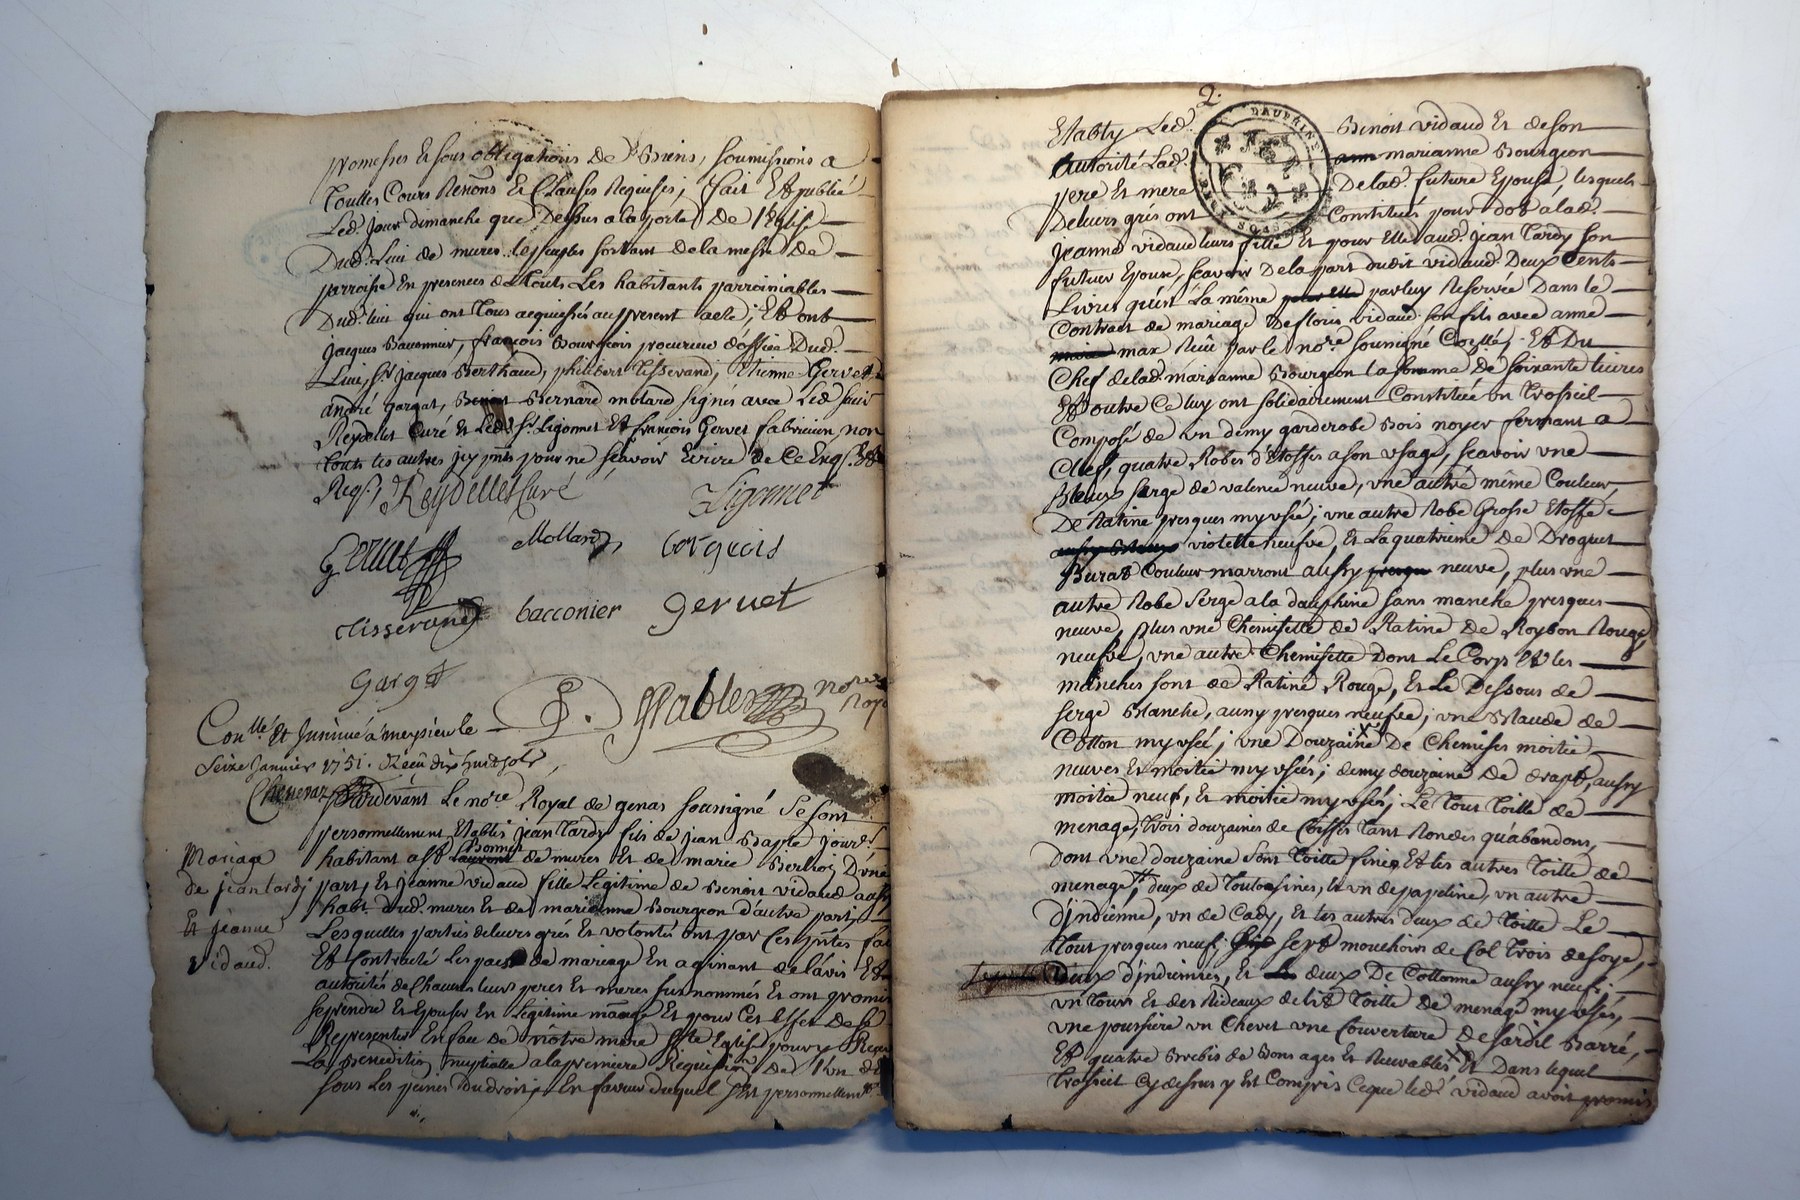 promesses et sous obligations de Biens, soumissions a
Touttes Cours Renons Et Clauses Requises; fait Et publié
Led. Jour dimanche que Dessus a la porte De l'Eglise
Dud. Lui de mures les peuples sortant de la messe de
parroisse En presences de Touts Les habitants parroissiables
Dud. lui qui ont Tous acquiessés au present acte; Et ont
Jacques Bauonnier, françois Bourgeois procureur d'office Dud.
Lui, Sr. Jacques Berthaud, philibert Tisserand, Etienne Gervet
andré gargat, Bernard molard signés avec Led. Sieur
Reydellet Curé Et Led. Sr. Ligonnet Et françois Gervet fabricien, non
Touts les autres pour ne sçavoir Ecrire de Ce Enq. Et
Reqs. Reydellet Curé Ligonnet
Gervet Mollard
Tisserand bacconier gervet
gargat
nore
Roy
Con.llé Et Insinué à meyzieu le
Seize Janvier 1751. Reçû dix huit sols
Pardevant Le nore Royal de genas soussigné se sont
personnellement Etablis jean Tardy fils de Jean Bapte Jour.
habitant a st Bonnet de mures Et de marie D'une
part, Et jeanne vidaud fille Legitime de Benoit vidaud aussy
habt. Dud. mures Et de marianne Bourgeon d'autre part,
Lesquelles parties de leurs grés Et volontés ont par Ces pntes fait
Et Contracté Les paes de mariage En agissant de l'avis Et
autorités de Chacuns leurs peres Et meres surnommés Et ont promis
se prendre Et Epouser En Legitime maage Et pour Cet effet De se
Representer En face de nôtre mere ste Eglise pour y Recevoir
La Benediction nuptialle a la premiere Requision De l'un d'
sous Les peines Du droit; En faveur duquel Est personnellemt.
Mariage
de jean tardi
Et jeanne
vidaud.
2.
DAUPHINE
Etably Led. Benoit vidaud Et de son
Autorité Lad. marianne Bourgeon
pere Et mere De lad. future Epouse, lesquels
De leurs grés ont Constitués pour dot a lad.
jeanne vidaud leurs fille Et pour Elle aud. Jean Tardy son
futeur Epoux, sçavoir De la part dudit vidaud Deux Cents
Livres qu'est La même par luy Reservée Dans le
Contract de mariage De vidaud son fils avec anne
max Reçû par le nore soussigné Et Du
Chef de lad. marianne Bourgeon la somme de soixante livres
Et outre Ce luy ont solidairement Constitué un Trosseil
Composé de un demy garderobe Bois noyer fermant a
Clef, quatre Robes d'Etoffes a son usage, sçavoir une
Bleux serge de valence neuve, une autre même Couleur,
De Ratine presques my usée; une autre Robe Grosse Etoffe
violette neufve, Et La quatrieme De Droguet
Burat Couleur marront aussy neuve, plus une
autre Robe serge a la dauphine sans manche presques
neuve, plus une Chemisette de Ratine De Roybon Rouge
neufve, une autre Chemisette Dont Le Corps Et les
manches sont de Ratine Rouge, Et Le Dessous de
serge Blanche, aussy presques neufve; une Blaude de
Cotton my usée; une Douzaine De Chemises moitié
neuves Et moitié my usées; demy douzaine De drapt, aussy
moitié neuf, Et moitié my usés; Le Tout Toille de
menage, Trois douzaines de Coiffes tant Rondes qu'abandons,
dont une douzaine sont Toille fine, Et les autres Toille de
menage, deux de Toulousines,
D'jndienne, un de Cady, Et les autres deux de Toille Le
Tout presques neuf; sept mouchoirs de Col Trois de soye,
Deux d'jndiennes, Et deux De Cottonne aussy neufs;
un Tour Et des Rideaux de lit Toille De menage my usés,
une poussiere un Chevet une Couverture De sardil Barré,
Et quatre Brebis de Bons ages Et Recevables Et Dans lequel
Trosseil Cy dessus y Est Compris Ce que led. vidaud avoit promis